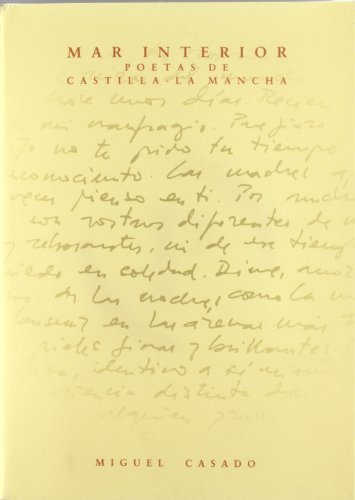 MAR INTERIOR
POETAS DE
CASTILLA LA MANCHA
hace unos días Recien
mi naufragio. Prefiero
Yo no te pido tu tiempo
conocimiento. Las madres a
veces pienso en ti. Por mucho
son rostros diferentes de
y rebosantes, ni de ese tiempo
miedo en soledad. Dime, amor
de las noches, como la
buscar en las arenas más
pieles finas y brillantes
idéntico a sí mismo
distinta
alguien
MIGUEL CASADO